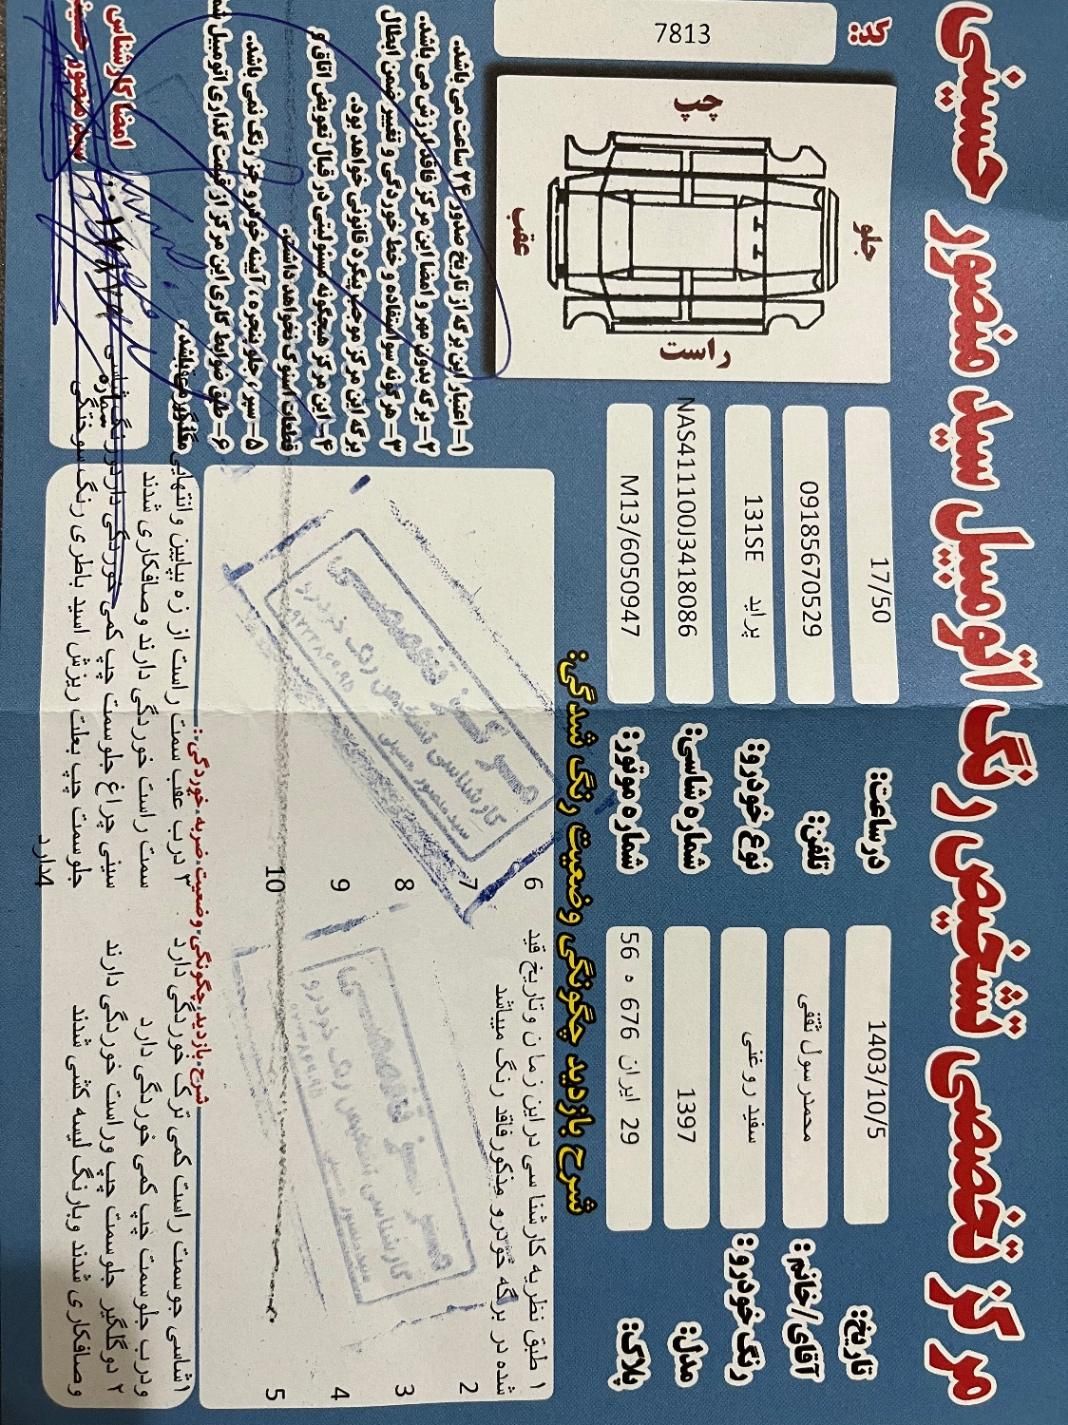 مرکز تخصصی تشخیص رنگ اتومبیل سید منصور حسینی
تاریخ: 1403/10/5
در ساعت: 17/50
کد: 7813
آقای/خانم: محمدرسول ثقفی
تلفن: 09185670529
رنگ خودرو: سفید روغنی
نوع خودرو: پراید 131SE
مدل: 1397
شماره شاسی: NAS411100J3418086
پلاک: 29 ایران 676 ه 56
شماره موتور: M13/6050947
جلو
چپ
راست
عقب
شرح بازدید چگونگی وضعیت رنگ شدگی:
1 طبق نظریه کارشناسی در این زمان و تاریخ قید
شده در برگه خودرو مذکور فاقد رنگ میباشد
2
3
4
5
6
7
8
9
10
مرکز تخصصی
کارشناسی تشخیص رنگ خودرو
سید منصور حسینی
مرکز تخصصی
کارشناسی تشخیص رنگ خودرو
۱- اعتبار این برگه از تاریخ صدور ۲۴ ساعت می باشد.
۲- برگه بدون مهر و امضا این مرکز فاقد ارزش می باشد.
۳- هر گونه سوء استفاده و خط خوردگی و تغییر ضمن ابطال
برگه این مرکز موجب پیگرد قانونی خواهد بود.
۴- این مرکز هیچگونه مسئولیتی در قبال تعویض اتاق و
قطعات استوک نخواهد داشت.
۵- سپر، جلو پنجره، آیینه خودرو جز رنگ نمی باشد.
۶- طبق ضوابط کاری این مرکز از قیمت گذاری اتومبیل
شرح بازدید چگونگی وضعیت ضربه خوردگی:
1شاسی جوسمت راست کمی ترک خوردگی دارد
ودرب جلوسمت چپ کمی خوردگی دارد
۲ دوگلگیر جلوسمت چپ وراست خوردگی دارند
وصافکاری شدند وبارنگ لیسه کشی شدند
۳ درب عقب سمت راست از زه بپایین وانتهایی گلگیر
سمت راست خوردگی دارند وصافکاری شدند
سینی چراغ جلوسمت چپ کمی خوردگی دارد
جلوسمت چپ بعلت ریزش اسید باطری رنگ سوختگی
4دارد
امضا کارشناس
سید منصور حسینی